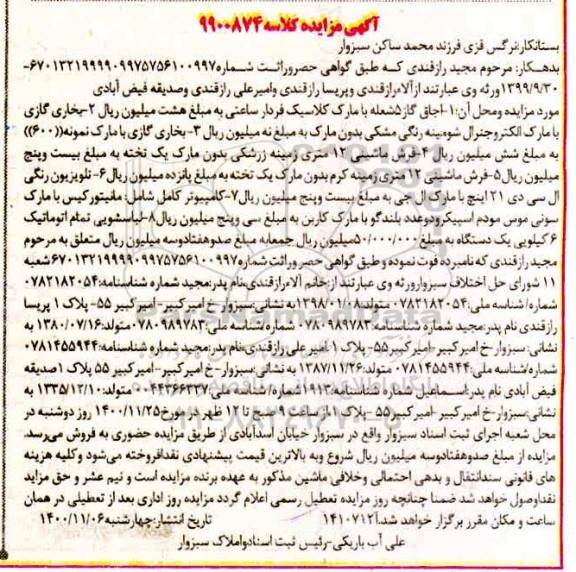 آگهی مزایده کلاسه ۹۹۰۰۸۷۴
بستانکار:نرگس قزی فرزند محمد ساکن سبزوار
بدهکار: مرحوم مجید رازقندی که طبق گواهی حصروراثت شماره۶۷۰۱۳۲۱۹۹۹۹۰۹۹۷۵۷۵۶۱۰۰۹۹۷-
۱۳۹۹/۹/۳۰ورثه وی عبارتند ازآلاءرازقندی وپریسا رازقندی وامیرعلی رازقندی وصدیقه فیض آبادی
مورد مزایده ومحل آن:۱-اجاق گاز۵شعله با مارک کلاسیک فردار ساعتی به مبلغ هشت میلیون ریال ۲-بخاری گازی
با مارک الکتروجنرال شومینه رنگی مشکی بدون مارک به مبلغ نه میلیون ریال ۳- بخاری گازی با مارک نمونه((۶۰۰))
به مبلغ شش میلیون ریال ۴-فرش ماشینی ۱۲ متری زمینه زرشکی بدون مارک یک تخته به مبلغ بیست وپنج
میلیون ریال۵-فرش ماشینی ۱۲ متری زمینه کرم بدون مارک یک تخته به مبلغ پانزده میلیون ریال۶-تلویزیون رنگی
ال سی دی ۲۱ اینچ با مارک ال جی به مبلغ بیست وپنج میلیون ریال۷-کامپیوتر کامل شامل: مانیتورکیس با مارک
سونی موس مودم اسپیکرودوعدد بلندگو با مارک کارین به مبلغ سی وپنج میلیون ریال۸-لباسشویی تمام اتوماتیک
۶کیلویی یک دستگاه به مبلغ ۵۰/۰۰۰/۰۰۰میلیون ریال جمعابه مبلغ صدوهفتادوسه میلیون ریال متعلق به مرحوم
مجید رازقندی که نامبرده فوت نموده وطبق گواهی حصروراثت شماره۶۷۰۱۳۲۱۹۹۹۹۰۹۹۷۵۷۵۶۱۰۰۹۹۷شعبه
۱۱ شورای حل اختلاف سبزوارورثه وی عبارتند از:خانم آلاءرازقندی،نام پدر:مجید شماره شناسنامه:۰۷۸۲۱۸۲۰۵۴
شماره/ شناسه ملی:۰۷۸۲۱۸۲۰۵۴ متولد:۱۳۹۸/۰۱/۰۸به نشانی:سبزوار-خ امیر کبیر- امیر کبیر ۵۵- پلاک ۱ پریسا
رازقندی نام پدر:مجید شماره شناسنامه:۰۷۸۰۹۸۹۷۸۳ شماره/شناسه ملی:۰۷۸۰۹۸۹۷۸۳متولد:۱۳۸۰/۰۷/۱۶ به
نشانی: سبزوار-خ امیر کبیر-امیر کبیر ۵۵- پلاک ۱-امیر علی رازقندی-نام پدر:مجید شماره شناسنامه:۰۷۸۱۴۵۵۹۴۴
شماره/شناسه ملی:۰۷۸۱۴۵۵۹۴۴ متولد:۱۳۸۷/۱۱/۲۶ به نشانی:سبزوار-خ امیرکبیر- امیرکبیر ۵۵ پلاک ۱صدیقه
فیض آبادی نام پدر:اسماعیل شماره شناسنامه:۱۹۱۳شماره/شناسه ملی:۰۰۴۴۳۶۶۳۳۷ متولد:۱۳۳۵/۱۲/۱۰ به
نشانی:سبزوار-خ امیر کبیر-امیر کبیر۵۵ -پلاک ۱،از ساعت ۹ صبح تا ۱۲ ظهر در مورخ۱۴۰۰/۱۱/۲۵ روز دوشنبه در
محل شعبه اجرای ثبت اسناد سبزوار واقع در سبزوار خیابان اسدآبادی از طریق مزایده حضوری به فروش می‌رسد.
مزایده از مبلغ صدوهفتادوسه میلیون ریال شروع وبه بالاترین قیمت پیشنهادی نقدافروخته می‌شود وکلیه هزینه
های قانونی سندانتقال و بدهی احتمالی وخلافی ماشین مذکور به عهده برنده مزایده است و نیم عشر و حق مزاید
نقداوصول خواهد شد ضمنا چنانچه روز مزایده تعطیل رسمی اعلام گردد مزایده روز اداری بعد از تعطیلی در همان
ساعت و مکان مقرر برگزار خواهد شد.آ۱۴۱۰۷۱۲ تاریخ انتشار:چهارشنبه۱۴۰۰/۱۱/۰۶
علی آب باریکی-رئیس ثبت اسنادواملاک سبزوار